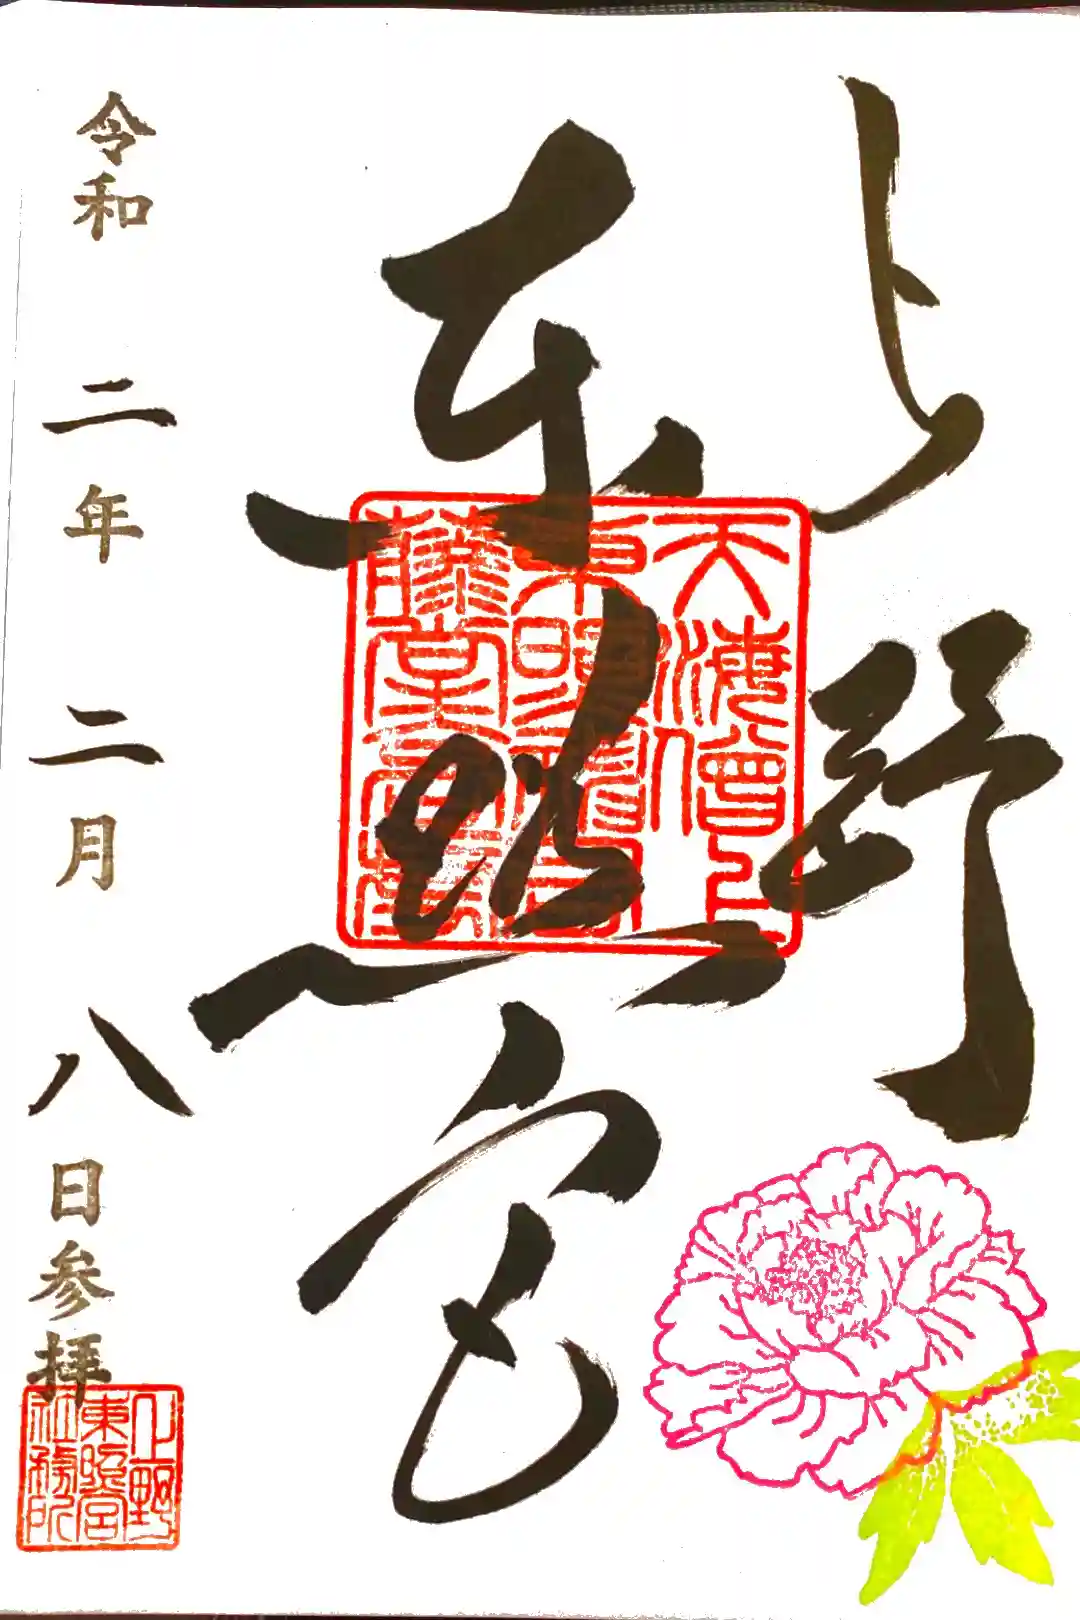 上野
東照宮
令和二年二月八日参拝
天海僧正
東照宮
藤堂高虎
上野
東照宮
社務所